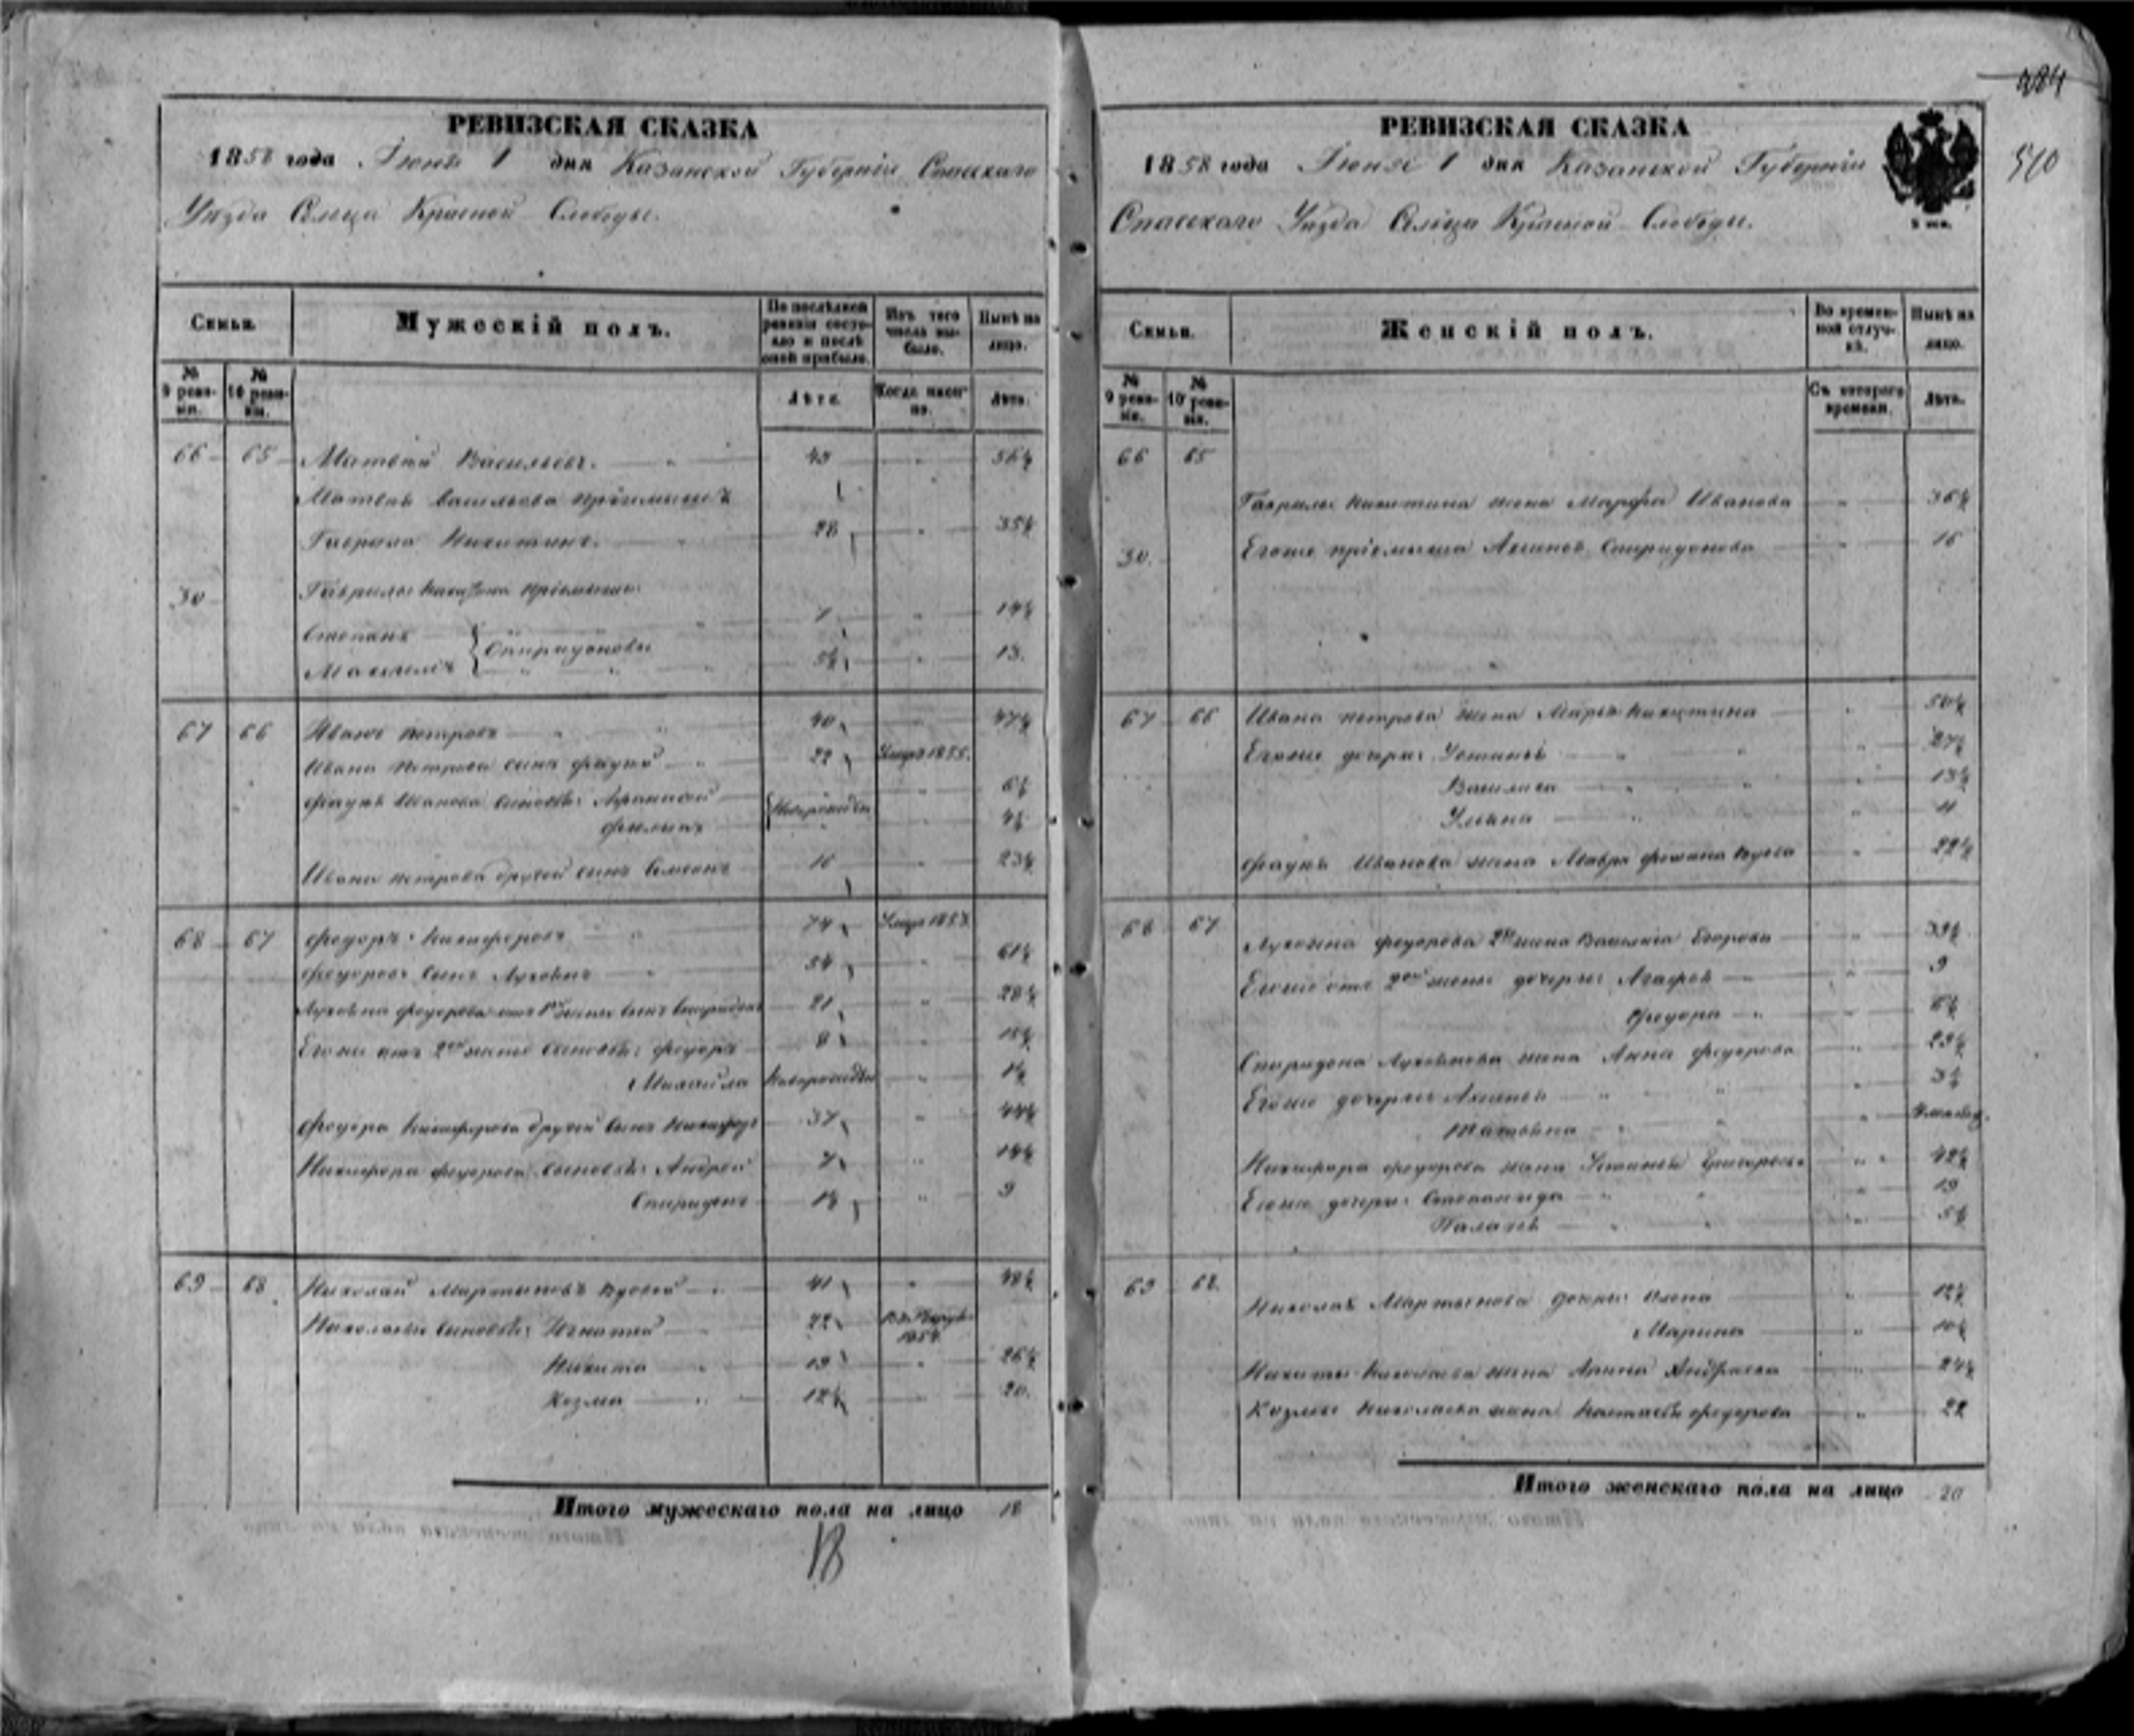 РЕВИЗСКАЯ СКАЗКА
1858 года Іюня 1 дня Казанской Губерніи Спасскаго
Уѣзда Сельца Красной Слободы.
Семьи.
Мужескій полъ.
По послѣдней ревизіи состояло и послѣ оной прибыло.
Изъ того числа выбыло.
Нынѣ на лицо.
№ 9 ревизіи.
№ 10 ревизіи.
Лѣта.
Когда именно.
Лѣта.
66 65 Матвей Васильевъ. 49 56½
Матвея Васильева пріемышъ
Гаврила Никитинъ. 28 35½
30 Гаврилы Никитина пріемыши
Степанъ 7 14½
Спиридоновы
Максимъ 5½ 13.
67 66 Иванъ Петровъ 40 47½
Ивана Петрова сынъ 22 Умеръ 1855.
Иванова сыновья: Афанасей Новорожден 6½
Филипъ 4½
Ивана Петрова другой сынъ Семенъ 16 23½
68 67 Федоръ Никифоровъ 74 Умеръ 1853
Федоровъ сынъ Лукоянъ 54 61½
Лукояна Федорова отъ 1й жены сынъ Спиридонъ 21 28½
Егоже отъ 2й жены сыновья: Федоръ 8 15½
Михайла Новорожден 1½
Федора Никифорова другой сынъ Никифоръ 37 44½
Никифора Федорова сыновья: Андрей 7 14½
Спиридонъ 1½ 9
69 68 Николай Мартыновъ вдовой 41 48½
Николаевы сыновья: Игнатей 22 1854
Никита 19 26½
Козма 12½ 20.
Итого мужескаго пола на лицо 18
18
484
510
РЕВИЗСКАЯ СКАЗКА
1858 года Іюня 1 дня Казанской Губерніи
Спасскаго Уѣзда Сельца Красной Слободы.
Семьи.
Женскій полъ.
Во временной отлучкѣ.
Нынѣ на лицо.
№ 9 ревизіи.
№ 10 ревизіи.
Съ котораго времени.
Лѣта.
66 65
Гаврилы Никитина жена Марфа Иванова 36½
30. Егоже пріемыша Аксинья Спиридонова 16
67 66 Ивана Петрова жена Марья Никитина 50½
Егоже дочери: Устинья 27½
Василиса 13½
Ульяна 11
Иванова жена Мавра 22½
68 67 Лукояна Федорова 2я жена Василиса Егорова 39½
Егоже отъ 2й жены дочери: Агафья 9
Федора 6½
Спиридона Лукоянова жена Анна Федорова 29½
Егоже дочери: Аксинья 3½
Татьяна
Никифора Федорова жена Устинья Григорьева 42½
Егоже дочери: Степанида 19
Палагея 5½
69 68. Николая Мартынова дочери: Олена 12½
Марина 10½
Никиты Николаева жена Арина Андреева 24½
Козмы Николаева жена Настасья Федорова 22
Итого женскаго пола на лицо 20